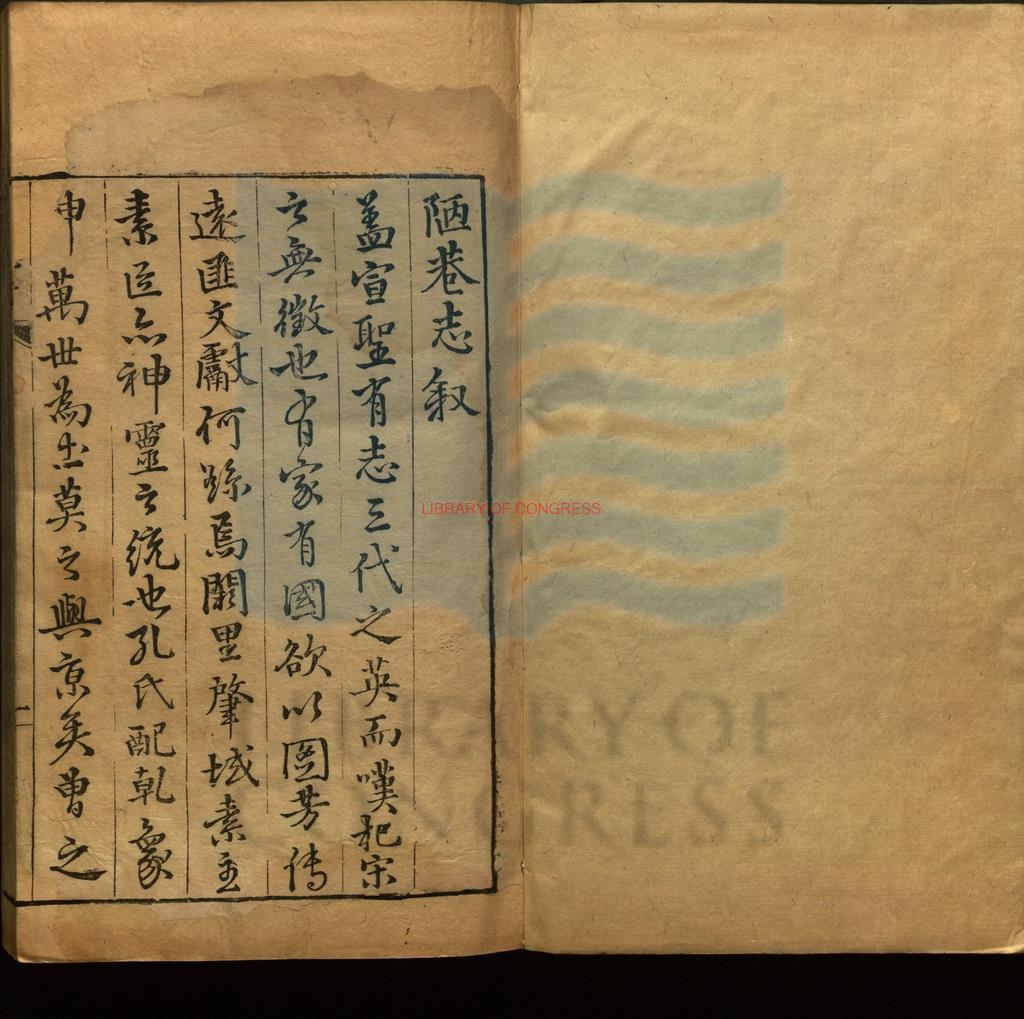 陋巷志叙
蓋宣聖有志三代之英而嘆杞宋
之無徵也有家有國欲以圖芳傳
遠匪文獻何繇焉闕里肇域素王
素臣亦神靈之統也孔氏配乾象
申萬世為烈莫之與京矣曽之
LIBRARY OF CONGRESS
LIBRARY OF
CONGRESS